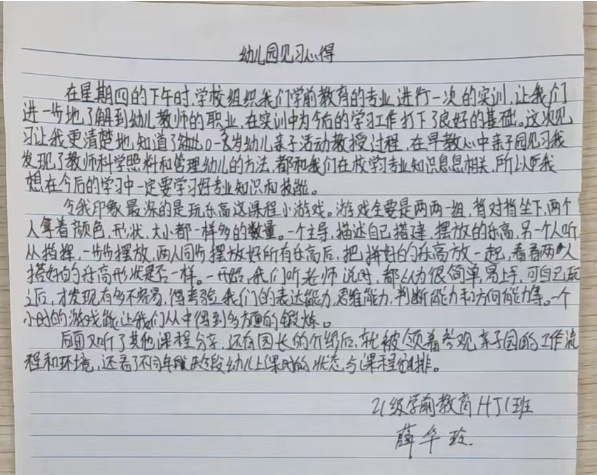 幼儿园见习心得
在星期四的下午时,学校组织我们学前教育的专业进行一次的实训,让我们
进一步地了解到幼儿教师的职业,在实训中为今后的学习工作打下了良好的基础。这次见
习让我更清楚地知道了幼儿0-3岁幼儿亲子活动教授过程,在早教心中亲子园见习我
发现了教师科学照料和管理幼儿的方法,都和我们在校学习专业知识息息相关,所以我
想在今后的学习中一定要学习好专业知识和技能。
令我印象最深的是玩乐高这课程小游戏。游戏全要是两两一组,背对背坐下,两个
人拿着颜色、形状、大小都一样多的数量。一个主导,描述自己搭建、摆放的乐高,另一个人听
从指挥,一步步摆放,两人同步摆放好所有乐高后,把拼好的乐高放一起,看看两人
搭好的乐高形状是否一样。一开始,我们听老师说时,都认为很简单,易上手,可自己玩
过后,才发现有多不容易,得考验我们的表达能力、思维能力、判断能力和方向能力等。一个
小小的游戏能让我们从中得到多方面的锻炼。
后面又听了其他课程分享,还有园长的介绍后,就被领着参观亲子园的工作流
程和环境,还看了不同年龄阶段幼儿上课时的状态与课程
21级学前教育HJ1班
薛华